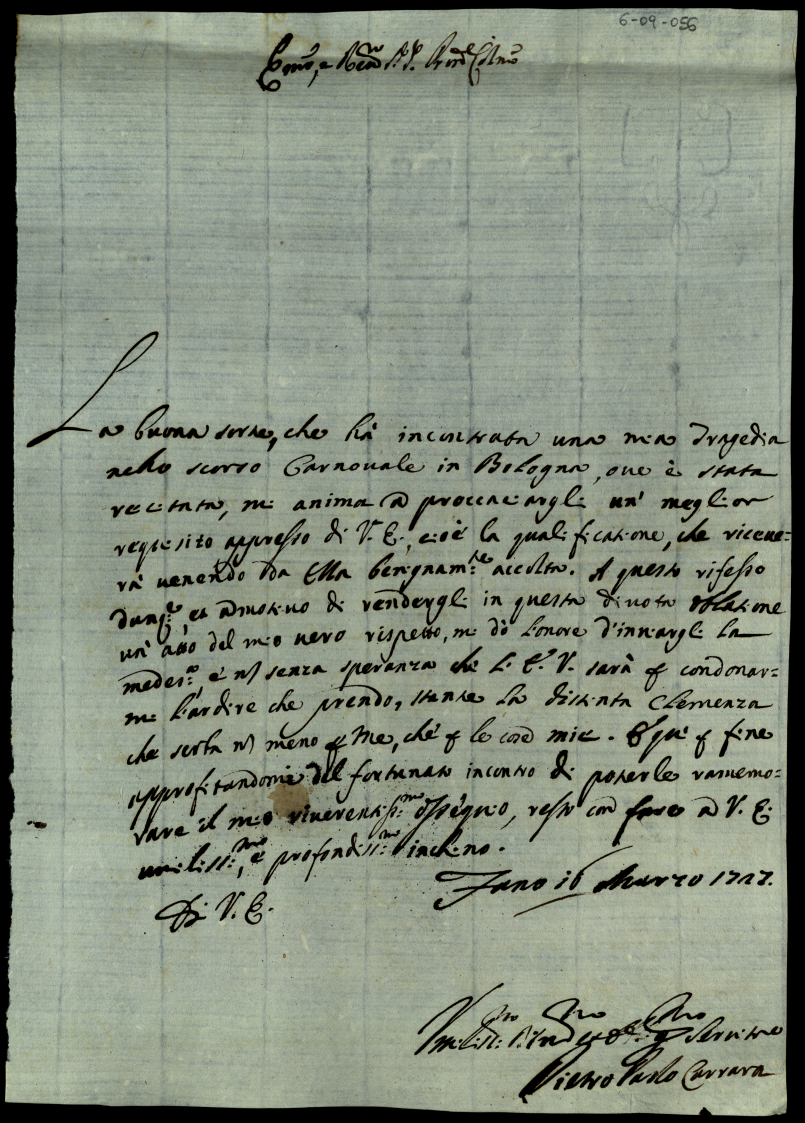 6-09-056
Emo, e Revmo Pr. Pr. Prone Colmo
La buona sorte, che hà incontrata una mia Tragedia
nello scorso Carnouale in Bologna, oue è stata
recitata, mi anima à proccacciargli un' meglior
requisito appresso di V. E., cioè la qualificatione, che riceue=
rà uenendo da Ella benignamte accolta. A questo riflesso
dunqe, et à motiuo di rendergli in questa diuota oblatione
un' atto del mio uero rispetto, mi dò l'onore d'inuiargli la
medesma, è nõ senza speranza che l' E. V. sarà p condonar=
mi l'ardire che prendo, stante la distinta Clemenza
che serba nõ meno p Me, che p le cose mie. E qui p fine
approfitandomi del fortunato incontro di poterle ramemo=
rare il mio riuerentissmo ossequio, resto con fare à V. E.
umilissmo, e profondissmo inchino.
Fano 16 Marzo 1727.
Di V. E.
Vmilissmo Seruitore
Pietro Paolo Carrara